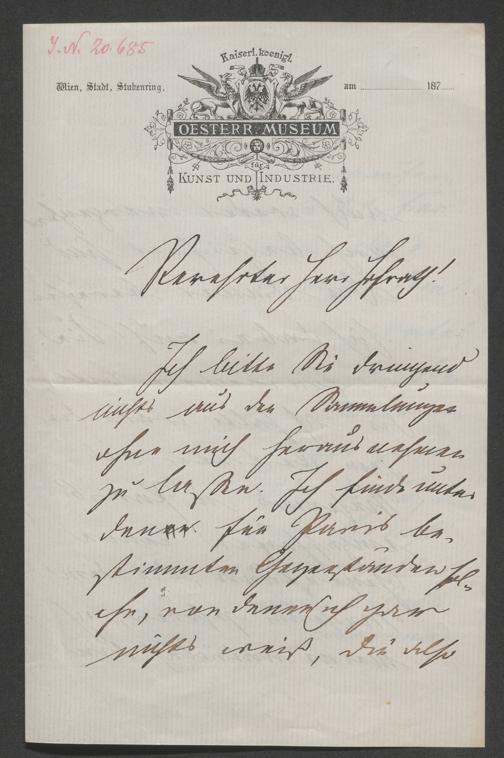 I.N. 20.685
Kaiserl. koenigl.
Wien, Stadt, Stubenring.
am 187
OESTERR. MUSEUM
für
KUNST UND INDUSTRIE.
Verehrter Herr Hofrath!
Ich bitte Sie dringend
nichts aus den Sammlungen
ohne mich herausnehmen
zu lassen. Ich finde unter
denen für Paris be-
stimmten Gegenständen sol-
che, von denen ich gar
nichts weiß, die also